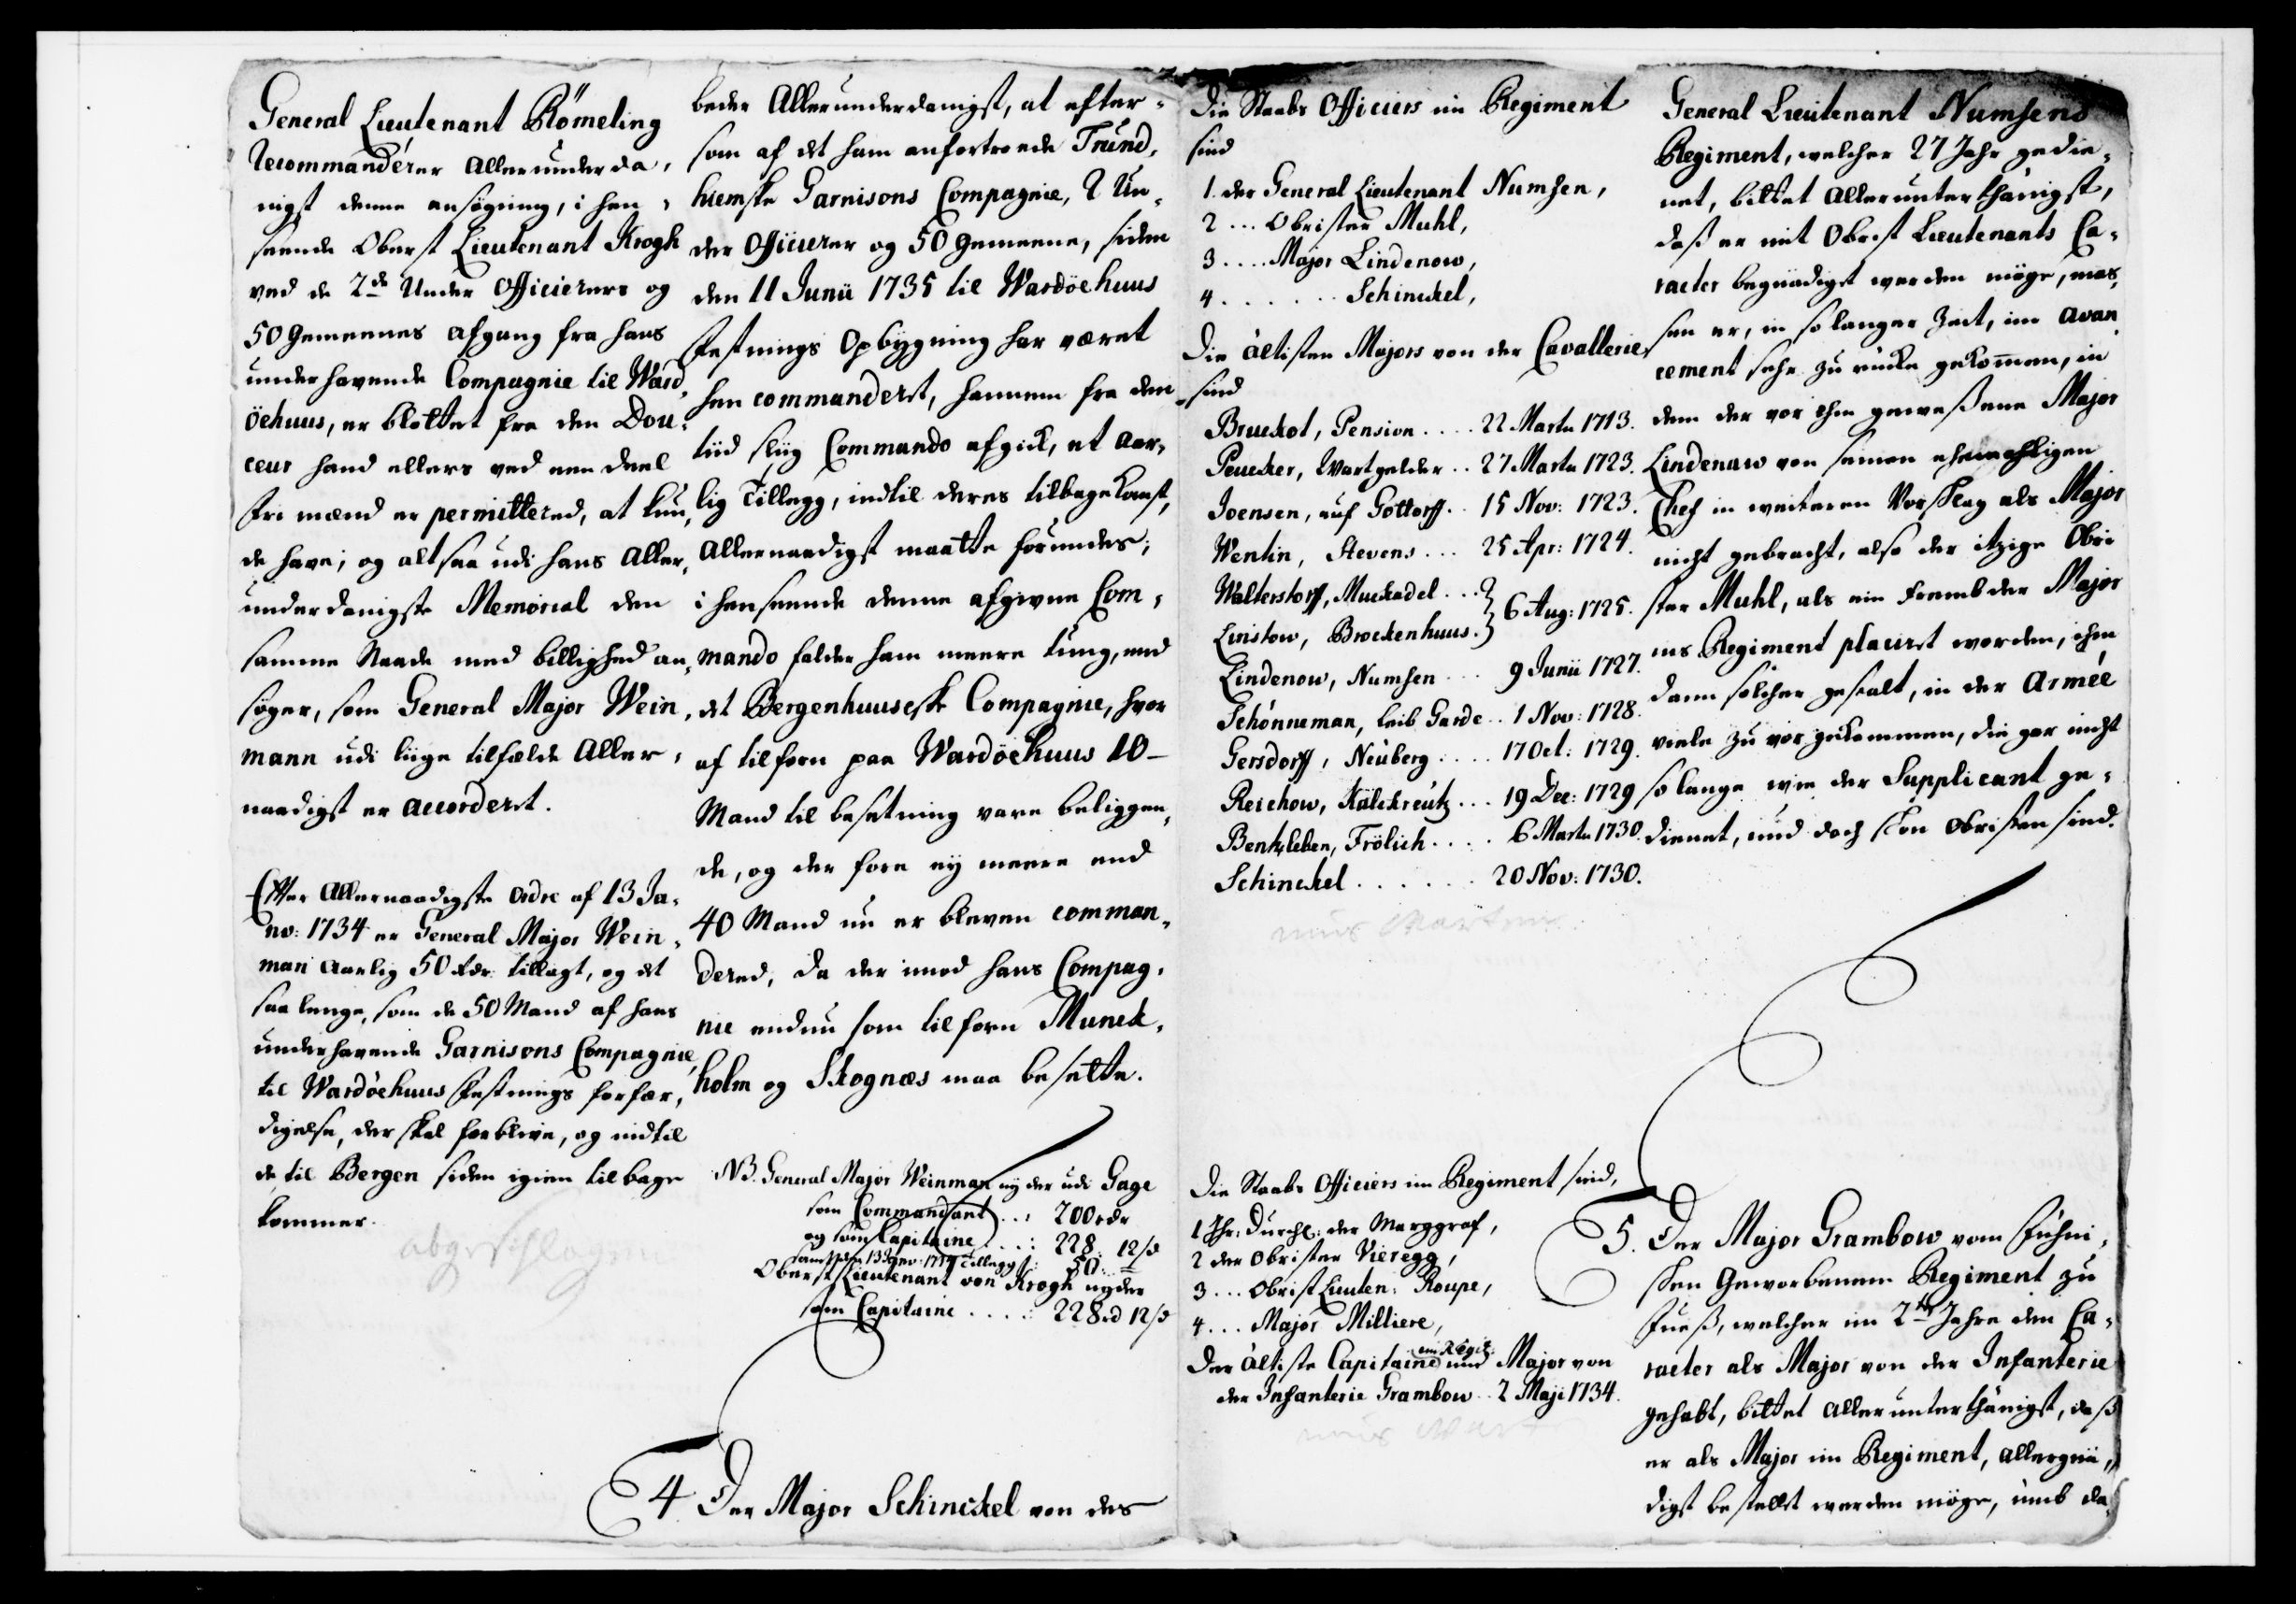 General Lieutenant Römeling
Recommandérer allerunderda,
nigst denne ansøgning, i hen,
seende Oberst Lieutenant Krogh
ved de 2de Under Officierers og
50 gemeenes afgang fra hans
underhavende Compagnie til Ward,
öehuus, er blottet fra den Dou,
ceur hand ellers ved een deel
frie mænd er permittered, at kun,
de have; og altsaa udi hans aller,
underdanigste Memorial den
samme Naade med billighed an,
søger, som General Major Wein,
mann udi liige tilfælde aller,
naadigst er accorderet.
Efter allernaadigste ordre af 13 Ja,
nv: 1734 er General Major Wein,
man aarlig 50 rdr tillagt, og det
saa lenge, som de 50 Mand af hans
underhavende Garnisons Compagnie,
til Wardöehuus festnings forfær,
digelse, der skal forblive, og indtil
de til Bergen siden igien tilbage
kommer.
abgeschlagen
beder allerunderdanigst, at efter,
som af det ham anfortroede Trund,
hiemske Garnisons Compagnie, 2 Un,
der Officierer og 50 gemeene, siden
den 11 Junii 1735 til Wardöehuus
festnings opbygning har været
hen commanderet, hannem fra den
tiid sliig Commando afgick, et aar,
lig tillegg, indtil deres tilbagekomst,
allernaadigst maatte forundes;
i henseende denne afgivne Com,
mando falder ham meere tung, end
det Bergenhuuseske Compagnie, hvor
af tilforn paa Wardöehuus 10
Mand til besetning vare beliggen,
de, og der fore ey meere end
40 Mand nu er bleven comman,
dered, da der imod hans Compag,
nie endnu som tilforn Munck,
holm og Skognæs maa besette.
NB. General Major Weinman nyder udi Gage
som Commandant . . : 200 rdr
og som Capitaine . . . : 228: 12 s
samt den 13 Janv: 1734 Tillegg : 50: =
Oberst Lieutenant von Krogh nyder
som Capitaine . . . . : 228 rd 12 s
4 Der Major Schinckel von des
Die Staabs Officiers im Regiment
sind
1. der General Lieutenant Numsen,
2 . . . Obrister Muhl,
3 . . . . Major Lindenow,
4 . . . . . . Schinckel,
Die ältisten Majors von der Cavallerie
sind
Bruckot, Pension . . . . 22 Martii 1713.
Peucker, Wartgelder . . 27 Martii 1723.
Joensen, auf Gottorff . . 15 Nov: 1723.
Wentin, Stevens . . . 25 Apr: 1724.
Walterstorff, Muckadel . . .
Linstow, Brockenhuus. } 6 Aug: 1725.
Lindenow, Numsen . . . 9 Junii 1727.
Schönneman, Leib Garde . . 1 Nov: 1728.
Gersdorff, Neüberg . . . . 17 Oct: 1729.
Reichow, Kalckreutz . . . 19 Dec: 1729
Bentzleben, Frölich . . . . 6 Martii 1730.
Schinckel . . . . . . 20 Nov: 1730.
Die Staabs Officiers im Regiment sind,
1 Ihr: Durchl: der Marggraf,
2 der Obrister Vieregg,
3 . . . Obrist Lieuten: Roupe,
4 . . . Major Milliere,
Der ältiste Capitaine im Regit: und Major von
der Infanterie Grambow . . 2 Maji 1734.
General Lieutenant Numsens
Regiment, welcher 27 Jahr gedie,
net, bittet allerunterthänigst,
daß er mit Obrist Lieutenants Ca,
racter begnadiget werden möge, mas,
sen er, in so langer Zeit, im avan,
cement sehr zu rücke gekommen, in
dem der vor ihm gewesene Major
Lindenaw von seinen ehemahligen
Chef in weiteren Vorschlag als Major
nicht gebracht, also der itzige Obri
ster Muhl, als ein frembder Major
ins Regiment placirt worden, ihm
dann solcher gestalt, in der Armée
viele zu vor gekommen, die gar nicht
so lange wie der Supplicant ge,
dienet, und doch schon Obristen sind.
5. Der Major Grambow vom Fühni,
schen Geworbenen Regiment zu
Fueß, welcher im 2ten Jahre den Ca,
racter als Major von der Infanterie
gehabt, bittet allerunterthänigst, daß
er als Major im Regiment, allergnä,
digst bestellt werden möge, umb da,